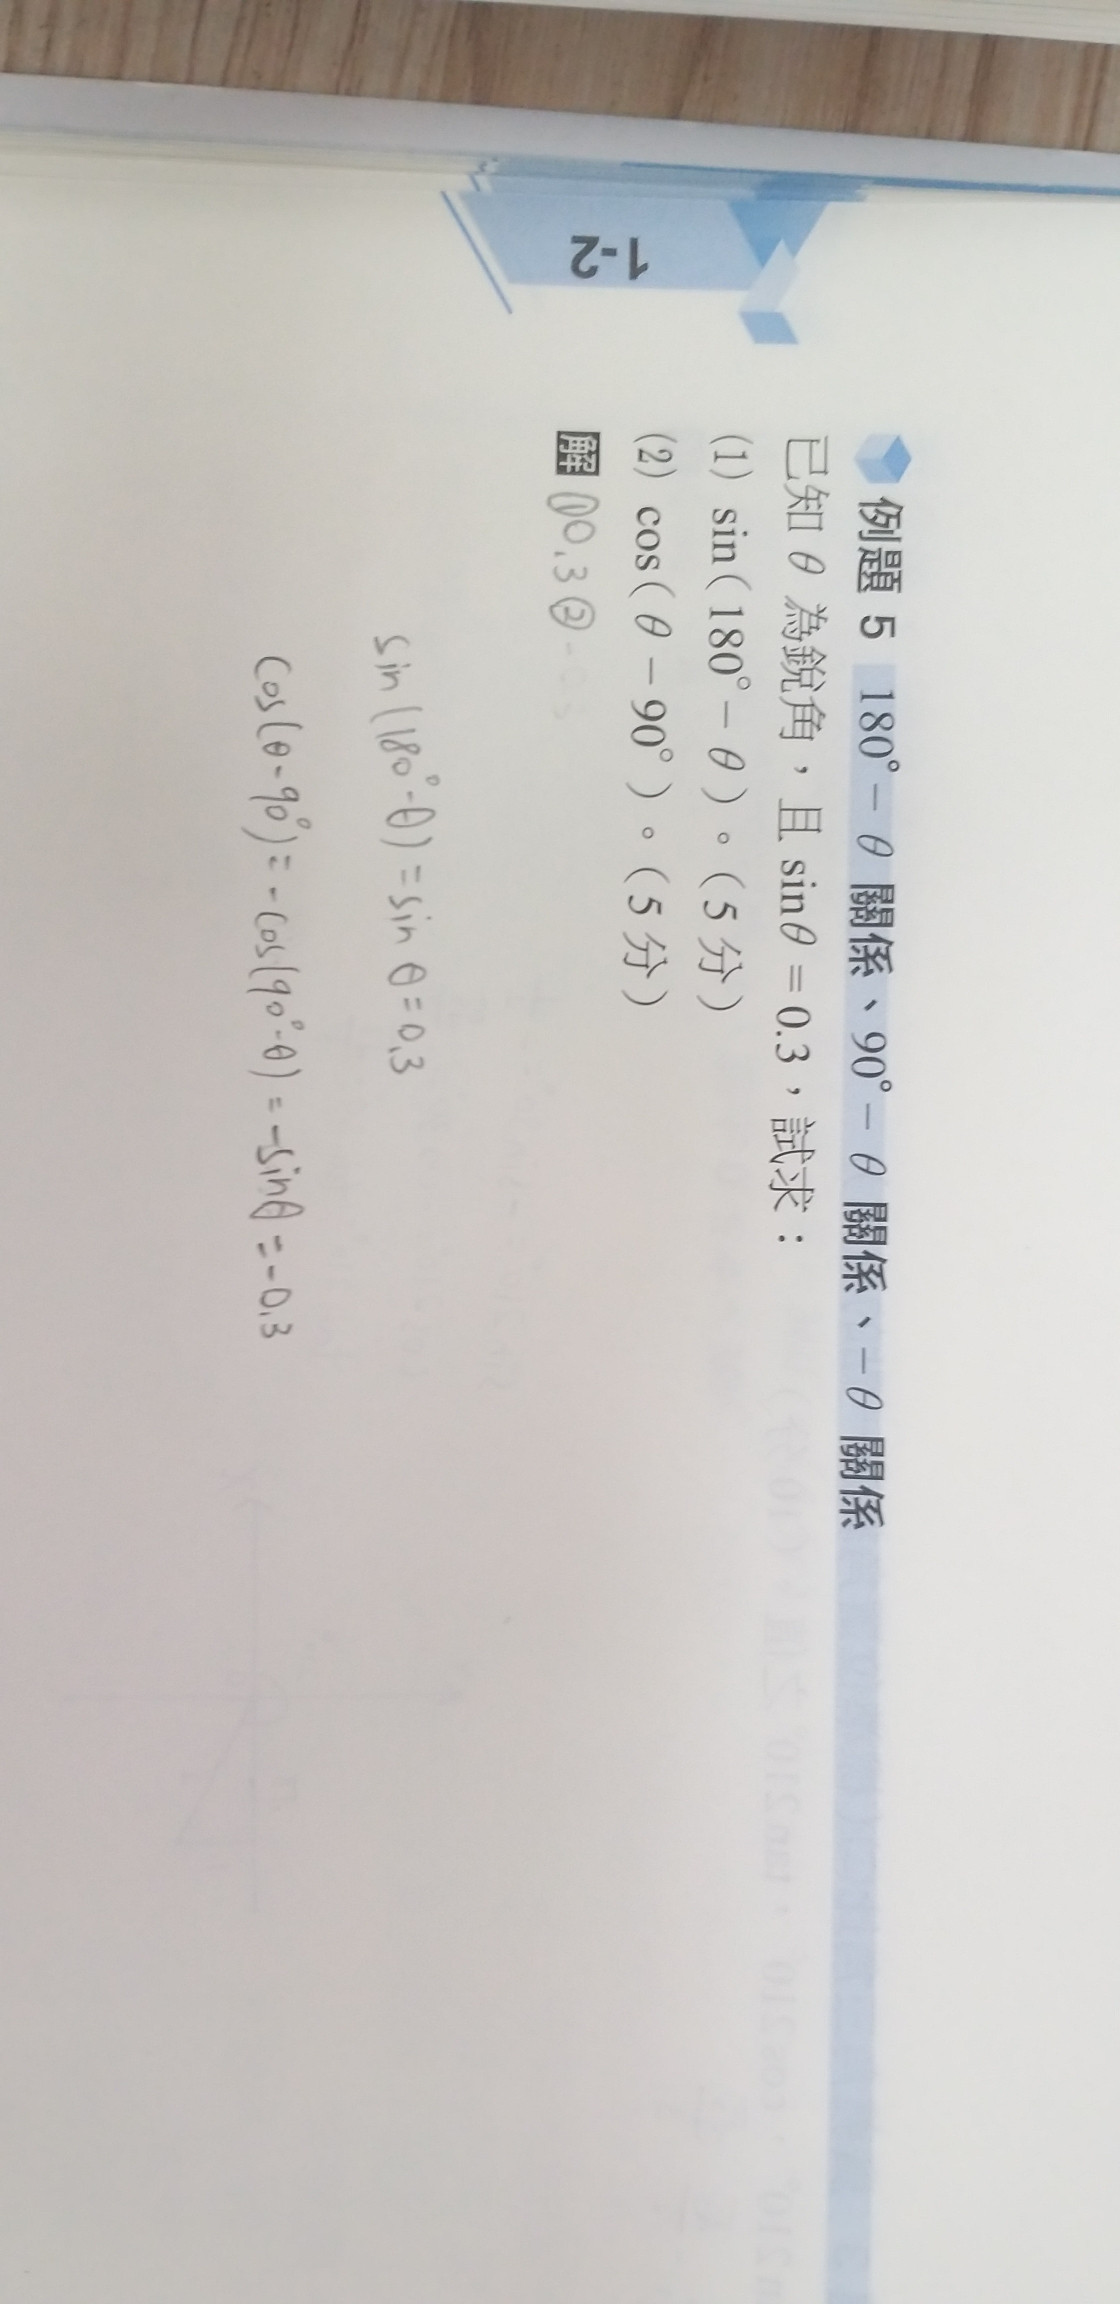 1-2
例題 5 180°－θ 關係、90°－θ 關係、－θ 關係
已知 θ 為銳角，且 sinθ＝0.3，試求：
(1) sin(180°－θ)。(5分)
(2) cos(θ－90°)。(5分)
解 ①0.3 ②-0.3
sin(180°-θ)=sin θ=0.3
cos(θ-90°)=-cos(90°-θ)=-sinθ=-0.3